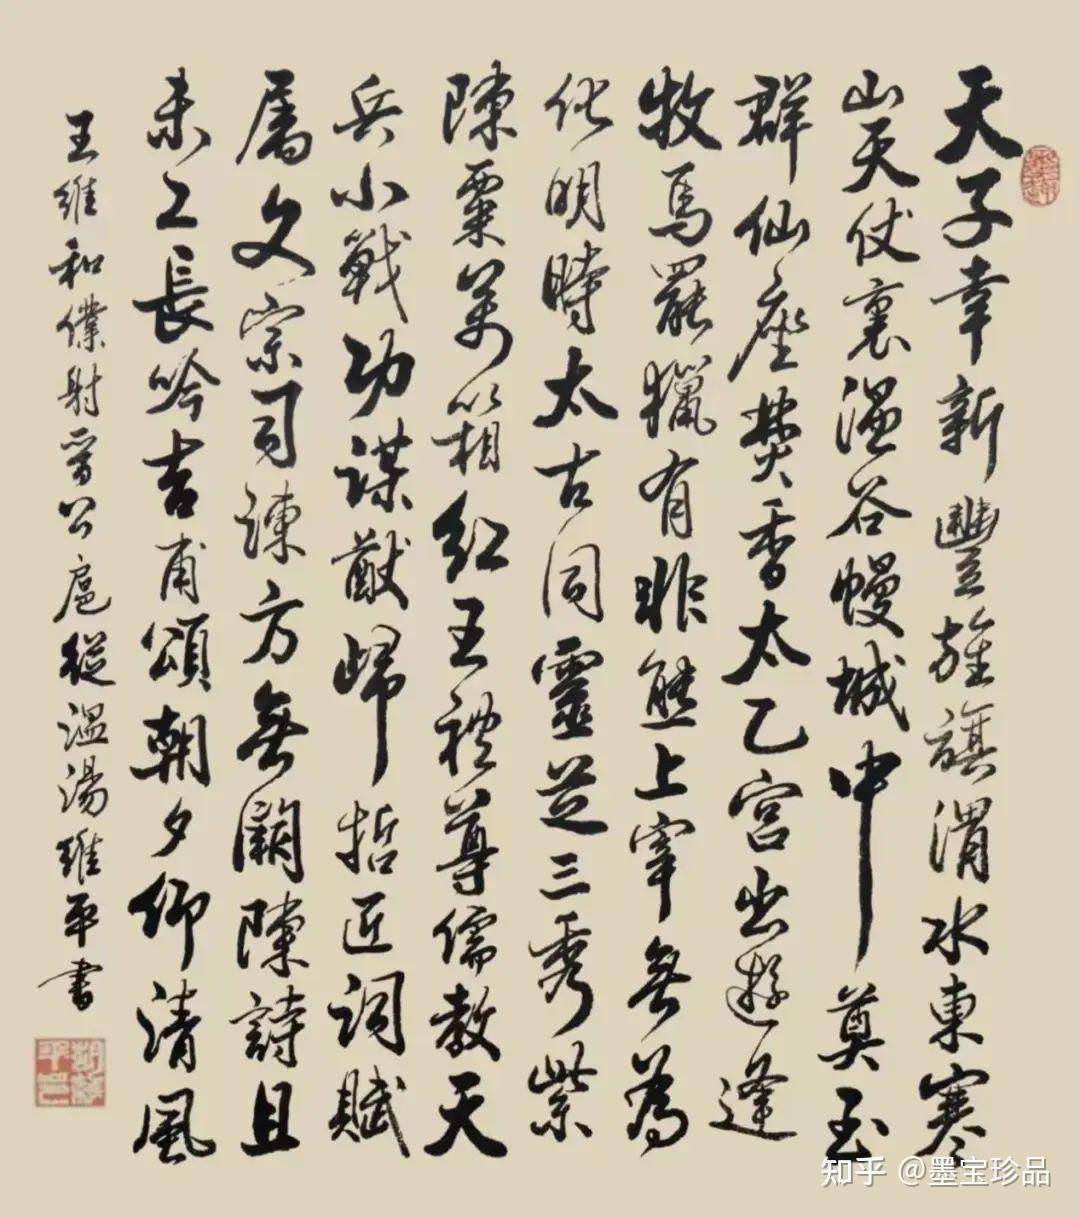 天子幸新豐旌旗渭水東寒
山天仗裏温谷幔城中奠玉
群仙座焚香太乙宮出遊逢
牧馬罷獵有非熊上宰無為
化明時太古同靈芝三秀紫
陳粟萬箱紅王禮尊儒教天
兵小戰功謀猷歸哲匠詞賦
屬文宗司諫方無闕陳詩且
未工長吟吉甫頌朝夕仰清風
王維和僕射晉公扈從温湯維平書
知乎 @墨宝珍品